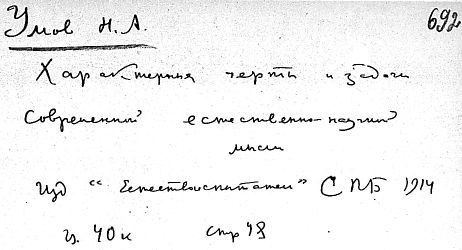 Умов Н. А. 692
Характерныя черты и задачи
современной естественно-научной
мысли
Изд "Естествоиспытатель" СПБ 1914
ц. 40 к стр 48